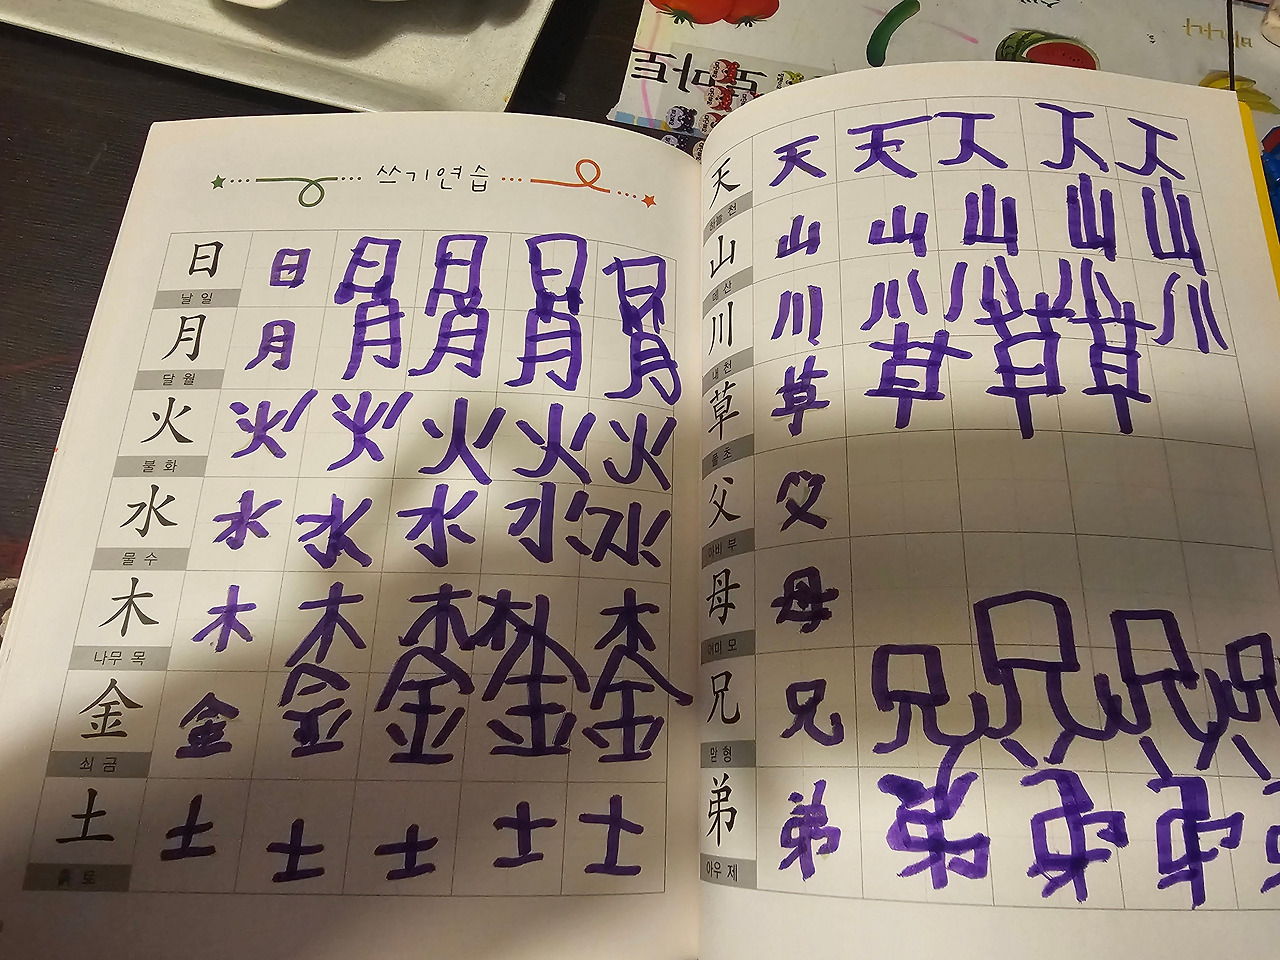 토마토
바나나
쓰기연습
日 日 日 日 日 日
날 일
月 月 月 月 月 月
달 월
火 火 火 火 火 火
불 화
水 水 水 水 水 水
물 수
木 木 木 木 木 木
나무 목
金 金 金 金 金 金
쇠 금
土 土 土 土 土 土
흙 토
天 天 天 天 天 天
하늘 천
山 山 山 山 山 山
메 산
川 川 川 川 川 川
내 천
草 草 草 草 草
풀 초
父 父
아비 부
母 母
어미 모
兄 兄 兄 兄 兄 兄
맏 형
弟 弟 弟 弟 弟
아우 제